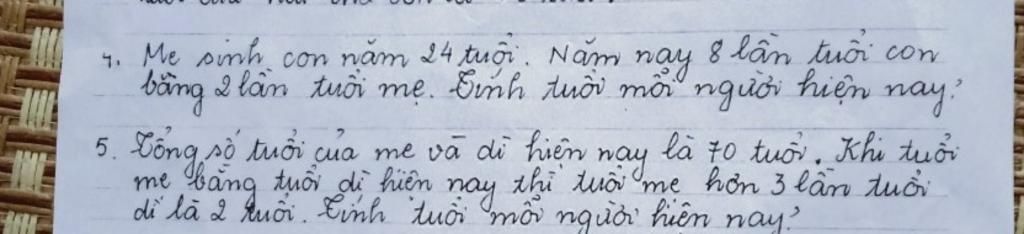 4. Mẹ sinh con năm 24 tuổi. Năm nay 8 lần tuổi con
bằng 2 lần tuổi mẹ. Tính tuổi mỗi người hiện nay?
5. Tổng số tuổi của mẹ và dì hiện nay là 70 tuổi. Khi tuổi
mẹ bằng tuổi dì hiện nay thì tuổi mẹ hơn 3 lần tuổi
dì là 2 tuổi. Tính tuổi mỗi người hiện nay?